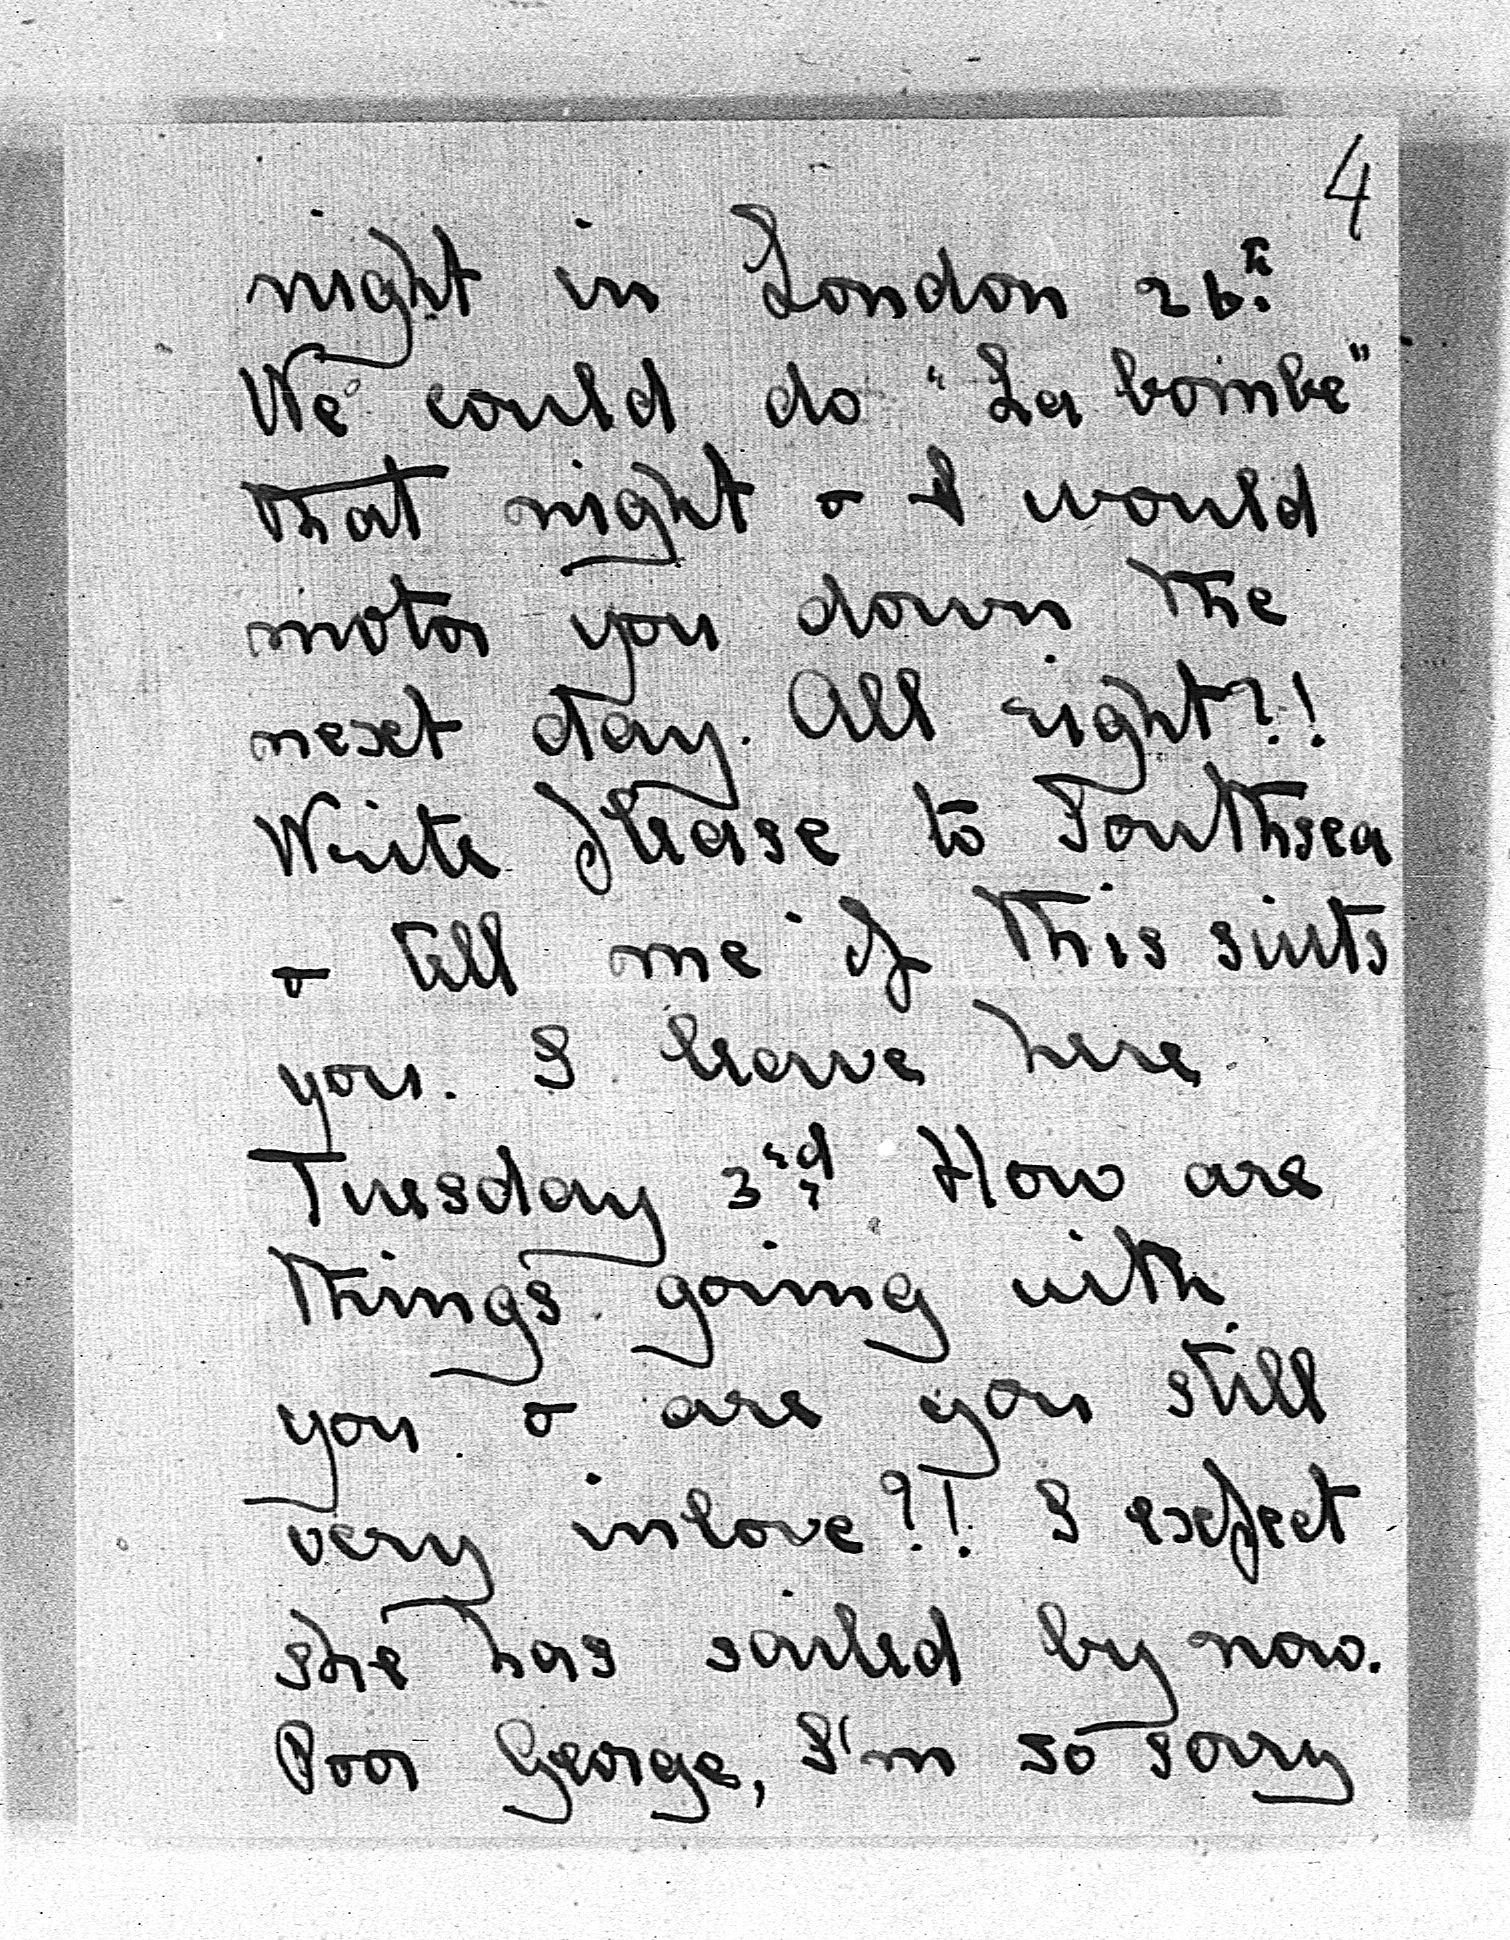 4
night in London 26th.
We could do "La bombe"
that night & I would
motor you down the
next day. All right?!
Write please to Southsea
& tell me if this suits
you. I leave here
Tuesday 3rd. How are
things going with
you & are you still
very inlove?! I expect
she has sailed by now.
Poor George, I'm so sorry